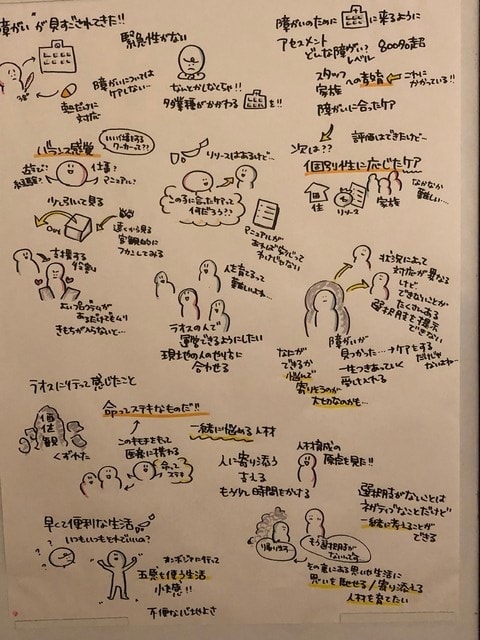 障がいが見すごされてきた!!
緊急性がない
なんとかしなくちゃ!!
多業種がかかわる
を!!
障がいについては
ケアしない…
熱だけに
対応
障がいのために
に来るように
アセスメント
どんな障がい?
レベル
800%超
スタッフ
家族
への素晴
これに
かかっている!!
障がいに合ったケア
評価はできたけど…
次は??
個別性に応じたケア
住
リリース
家族
なかなか
難しい…
バランス感覚
いい仕事をする
ワーカーって??
遊び?
仕事?
経験?
マニュアル?
少し引いて見る
Out
遠くから見る
客観的に
フカンしてみる
支援する
役割
よいプログラムが
あるだけでもムリ
きもちが入らないと…
リリースはあるけど…
この子に合ったケアって
何だろう??
マニュアルが
あれば安心って
わけじゃない
人を育てるって
難しいよね…
ラオスの人で
運営できるようにしたい
現地の人のやり方に
合わせる
状況によって
対応が異なる
けど
できないことが
たくさんある
選択肢を提示
できない
障がいが
見つかった…→ケアをする
だけじゃ
ないよね…
一生つきあっていく
愛してくれる
なにが
できるか
悩んで
寄りそうのが
大切なのかも…
ラオスに行って感じたこと
価
値
観
くずれた
命ってステキなものだ!!
このキモチをもって
医療に携わる
命って
ステキ
一緒に悩める人材
人に寄り添う
支える
もう少し時間をかける
人材育成の
原点を見た!!
選択肢がないことは
ネガティブなことだけど
一緒に考えることが
できる
帰ります…
もう選択肢が
ないんです…
その裏にある思いや生活に
思いを馳せる/寄り添える
人材を育てたい
早くて便利な生活
いつもいつもそれでいいの?
カンボジアに行って
五感を使う生活
小快感!!
不便な心地よさ